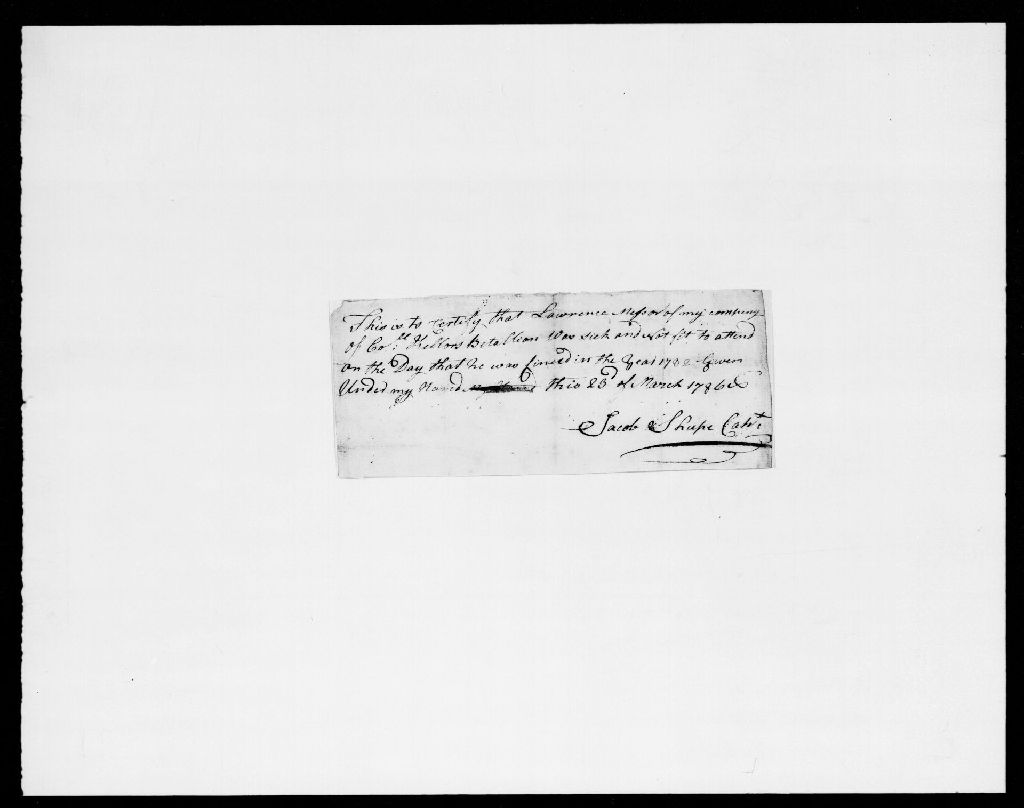 This is to Certify that Lawrence Messor of my company
of Col.ll Battallion Was sick and Not fit to attend
on the Day that he was fined in the Year 178 Given
Under my Hand this 28d of March 1786
Jacob Shupe Capt